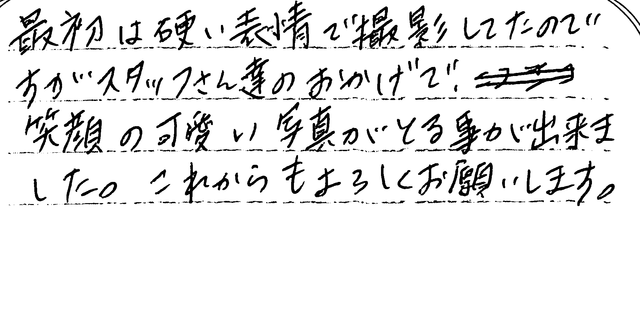 最初は硬い表情で撮影してたので
すがスタッフさん達のおかげで、
笑顔の可愛い写真がとる事が出来ま
した。これからもよろしくお願いします。